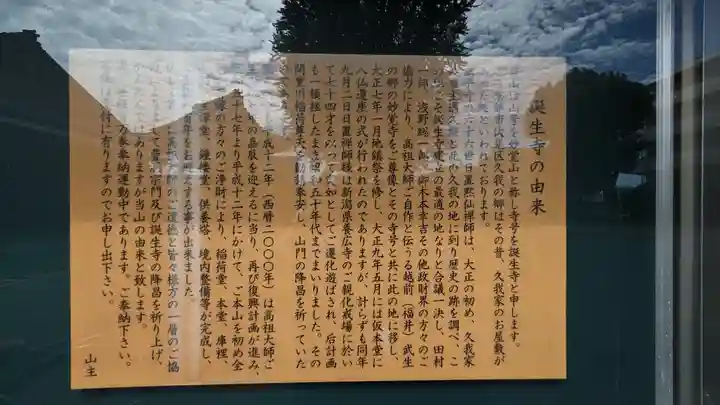 誕生寺の由来
当山は山号を妙覚山と称し寺号を誕生寺と申します。
京都市伏見区久我の郷はその昔、久我家のお屋敷が
といわれております。
六十六世日置黙仙禅師は、大正の初め、久我家
久我と此の久我の地に到り歴史の跡を調べ、こ
こそ誕生寺建立の最適の地なりと衆議一決し、田村
一師、浅野総一郎、御木本幸吉その他政財界の方々のご
協力により、高祖大師ご自作と伝うる越前(福井)武生
の郷の妙覚寺をご尊像とその寺号と共に此の地に移し、
大正七年一月地鎮祭を修し、大正九年五月には仮本堂に
八仏遷座の式が行われたのでありますが、計らずも同年
九月二日日置禅師様は新潟県養広寺のご親化戒場に於い
て七十四才を以って大如としてご遷化遊ばされ、后計画
も一頓挫したまま昭和五十年代までまいりました。その
間豊川稲荷尊天を勧請奉安し、山門の降昌を祈っていた
平成十二年(西暦二〇〇〇年)は高祖大師ご
の嘉辰を迎えるに当り、再び復興計画が進み、
十七年より平成十二年にかけて、ご本山を初め全
の方々のご浄財により、稲荷堂、本堂、庫裡、
禅堂、鐘楼堂、供養塔、境内整備等が完成し、
百年をお迎えする事が出来ました。
高祖大師のご遺徳と皆々様方の一層のご協
して曹洞宗門及び誕生寺の降昌を祈り上げ、
ありますが当山の由来と致します。
奉納運動中であります。ご奉納下さい。
受付に有りますのでお申し出下さい。
山主